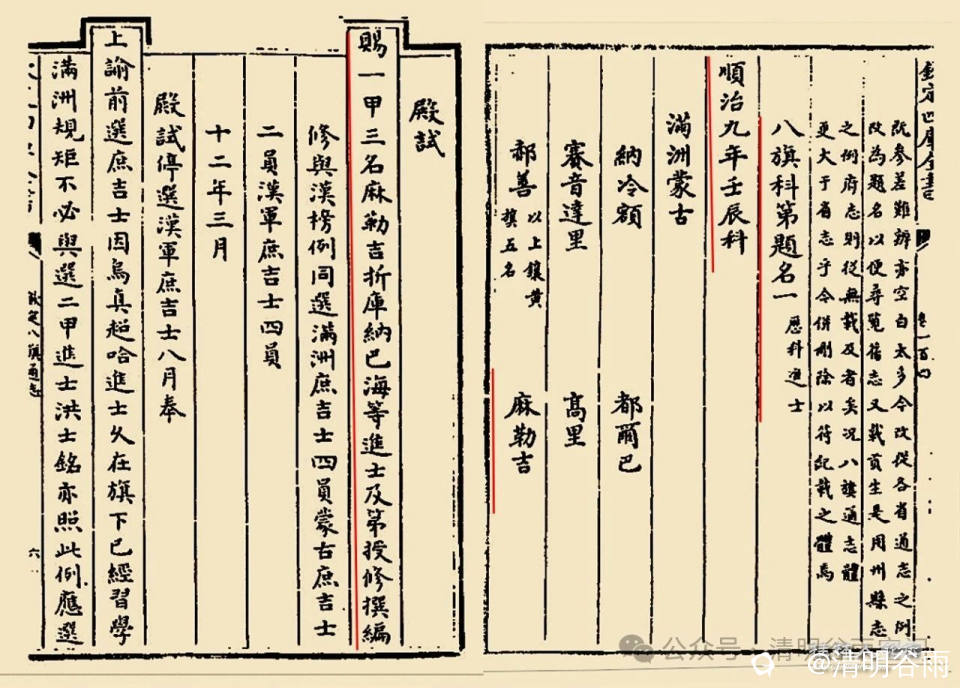 欽定四庫全書
既參差難辨亦空白太多今改從各省通志之例
改為題名以便尋覽舊志又載貢生是用州縣志
之例府志則從無載及者矣況八旗通志體
更大于省志乎今併刪除以符紀載之體焉
八旗科第題名一 歷科進士
順治九年壬辰科
滿洲蒙古
納冷額 都爾巴
賽音達里 高里
郝善 以上鑲黃旗五名 麻勒吉
殿試
賜一甲三名麻勒吉折庫納巴海等進士及第授修撰編
修與漢榜例同選滿洲庶吉士四員蒙古庶吉士
二員漢軍庶吉士四員
十二年三月
殿試停選漢軍庶吉士八月奉
上諭前選庶吉士因烏真超哈進士久在旗下已經習學
滿洲規矩不必與選二甲進士洪士銘亦照此例應選
欽定八旗通志
六
公众号·清明谷雨
@清明谷雨